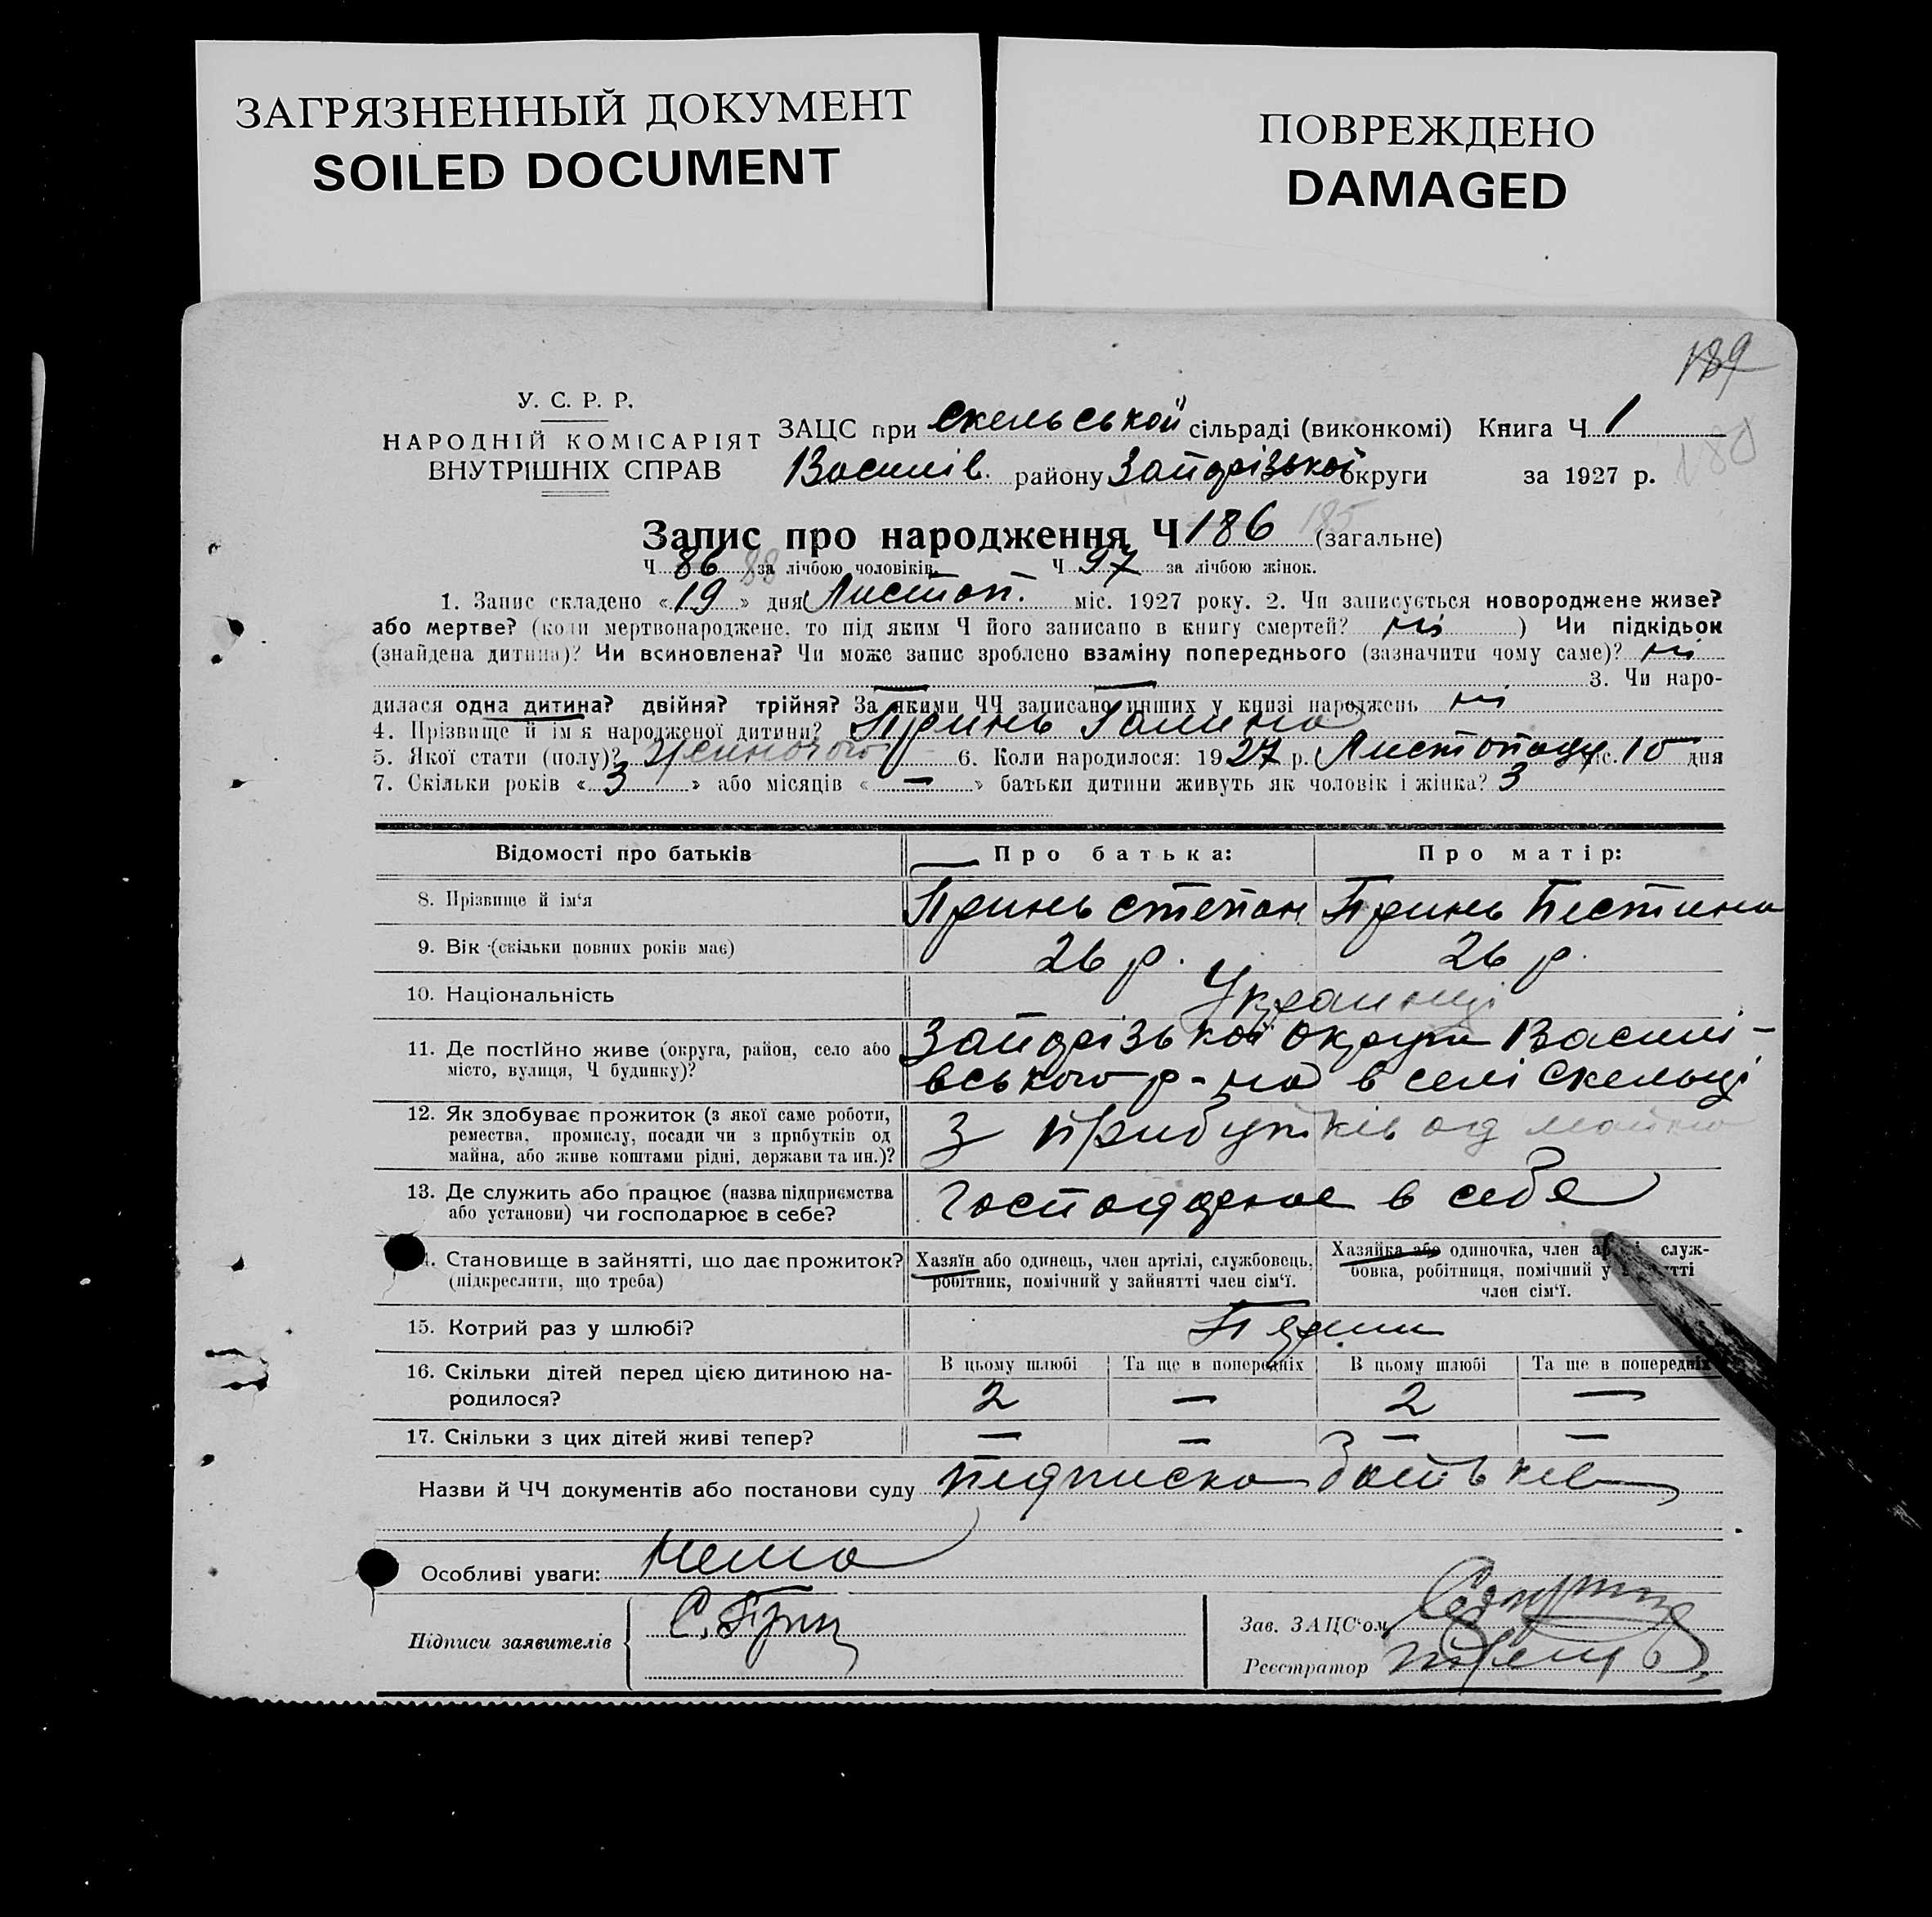 ЗАГРЯЗНЕННЫЙ ДОКУМЕНТ
SOILED DOCUMENT
ПОВРЕЖДЕНО
DAMAGED
189
У. С. Р. Р.
НАРОДНІЙ КОМІСАРІЯТ
ВНУТРІШНІХ СПРАВ
ЗАЦС при Скельській сільраді (виконкомі) Книга Ч 1
Василів. району Запорізької округи за 1927 р.
180
Запис про народження Ч 186 185 (загальне)
Ч 86 88 за лічбою чоловіків. Ч 97 за лічбою жінок.
1. Запис складено «19» дня Листоп. міс. 1927 року. 2. Чи записується новороджене живе?
або мертве? (коли мертвонароджене, то під яким Ч його записано в книгу смертей? ні ) Чи підкідьок
(знайдена дитина)? Чи всиновлена? Чи може запис зроблено взаміну попереднього (зазначити чому саме)? ні
3. Чи наро-
дилася одна дитина? двійня? трійня? За якими ЧЧ записано инших у книзі народжень ні
4. Прізвище й ім'я народженої дитини? Принь Галина
5. Якої стати (полу)? Жіночого 6. Коли народилося: 1927 р. Листопаду міс. 10 дня
7. Скільки років «3» або місяців «—» батьки дитини живуть як чоловік і жінка? 3
Відомості про батьків Про батька: Про матір:
8. Прізвище й ім'я Принь Степан Принь Пестина
9. Вік (скільки повних років має) 26 р. 26 р.
10. Національність Українці
11. Де постійно живе (округа, район, село або місто, вулиця, Ч будинку)? Запорізької округи Василі-
вського р-на в селі Скельці
12. Як здобуває прожиток (з якої саме роботи,
ремества, промислу, посади чи з прибутків од
майна, або живе коштами рідні, держави та ин.)? З прибутків од майна
13. Де служить або працює (назва підприємства
або установи) чи господарює в себе? Господарює в себе
. Становище в зайнятті, що дає прожиток?
(підкреслити, що треба)
Хазяїн або одинець, член артілі, службовець,
робітник, помічний у зайнятті член сім'ї.
Хазяйка або одиночка, член служ-
бовка, робітниця, помічний у
член сім'ї.
15. Котрий раз у шлюбі? Перши
16. Скільки дітей перед цією дитиною на-
родилося?
В цьому шлюбі Та ще в попередніх В цьому шлюбі Та ще в попередніх
2 — 2 —
17. Скільки з цих дітей живі тепер? — — — —
Назви й ЧЧ документів або постанови суду підписка батьків
Особливі уваги: Нема
Підписи заявителів С. Прин
Зав. ЗАЦС'ом
Реєстратор